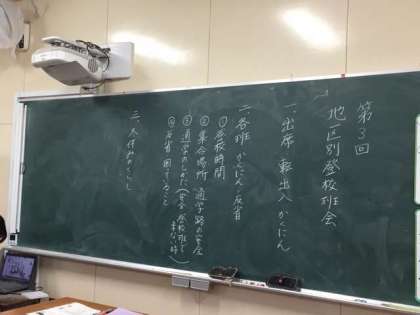 第3回
地区別登校班会
一、出席 転出入 かくにん
二、各班 かくにん・反省
①登校時間
②集合場所 通学路の安全
③通学のしかた(安全 登校班で来ない時)
④反省 困っていること
三、冬休みのくらし